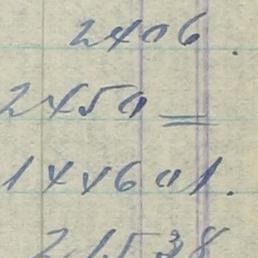 2406.
2450=
144601.
21538